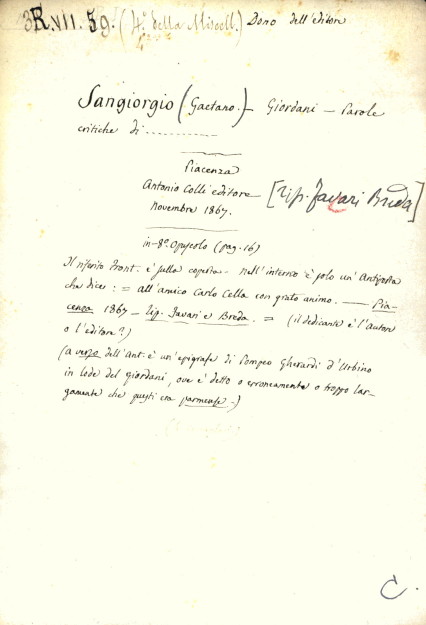 3R.VII.59. (4.ª della Miscell.) Dono dell'editore
Sangiorgio (Gaetano.) — Giordani — Parole
critiche di ..........
Piacenza
Antonio Colli editore [Tip. Javari Breda]
Novembre 1867.
in-8.º Opuscolo (pag. 16)
Il riferito Front. è sulla coperta - nell'interno è solo un'Antiporta
che dice: = all'amico Carlo Cella con grato animo. — Pia-
cenza 1867 — tip. Javari e Breda. = (il dedicante è l'autore
o l'editore?)
(a verso dell'Ant. è un'epigrafe di Pompeo Gherardi d'Urbino
in lode del giordani, ove è detto o erroneamente o troppo lar-
gamente che questi era parmense.)
C.